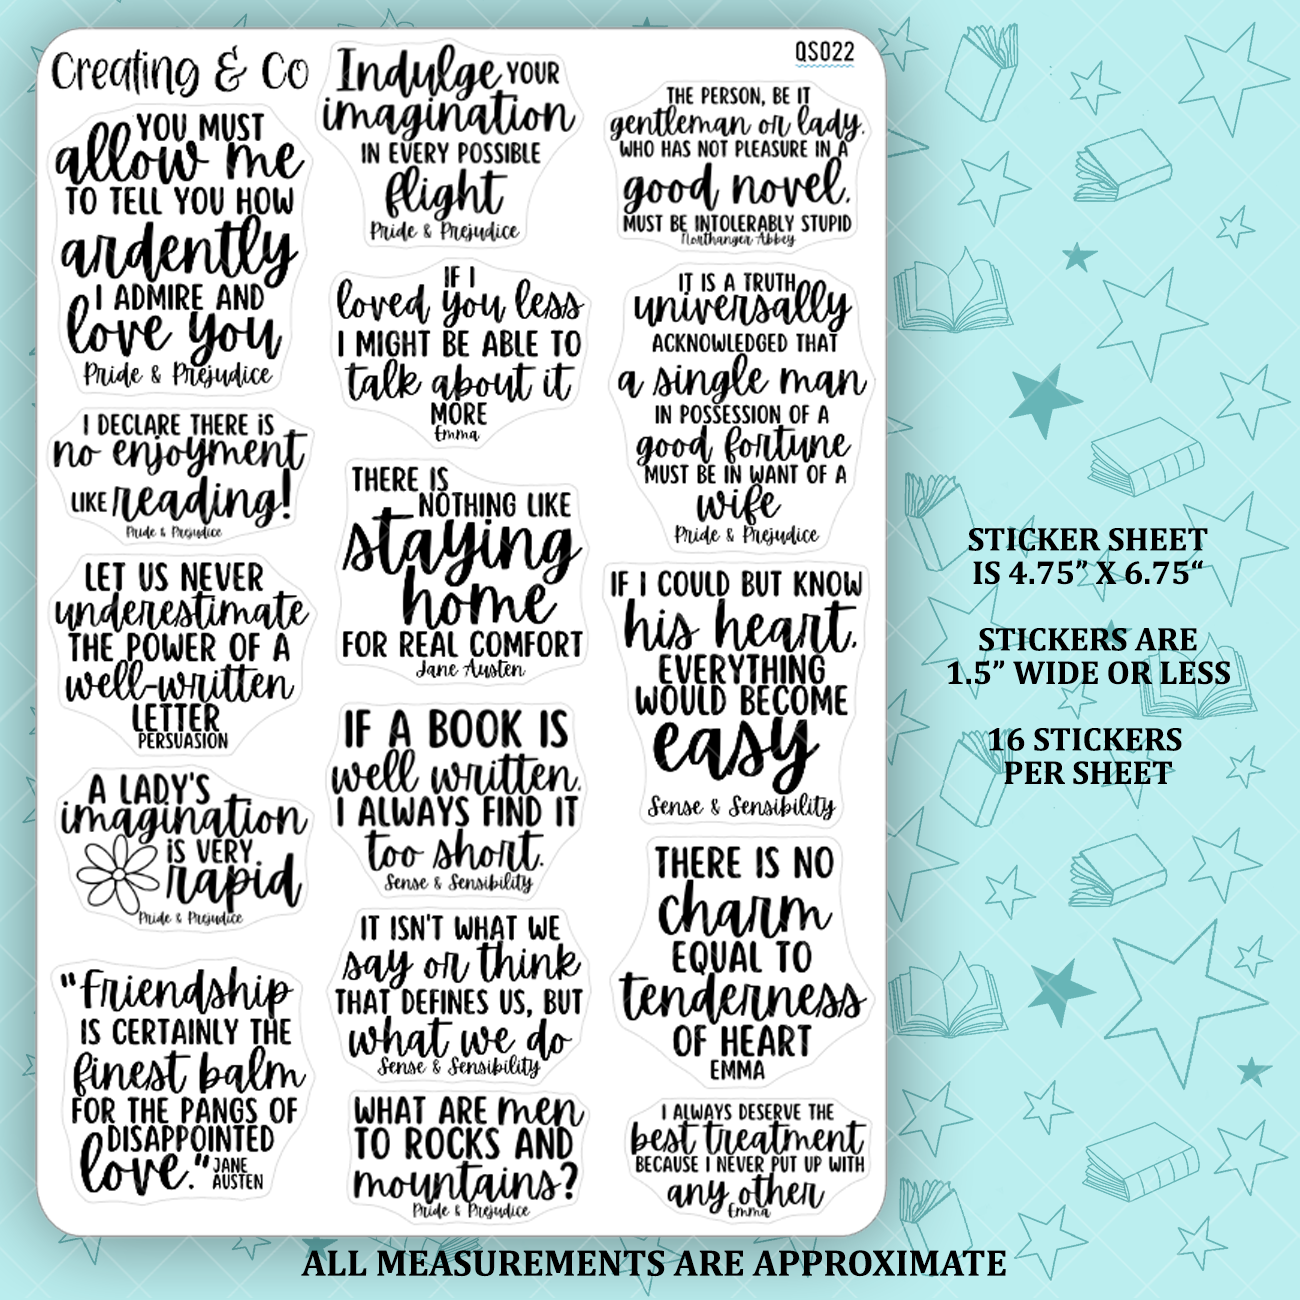 Creating & Co
QS022
YOU MUST
allow me
TO TELL YOU HOW
ardently
I ADMIRE AND
love you
Pride & Prejudice
I DECLARE THERE IS
no enjoyment
LIKE reading!
Pride & Prejudice
LET US NEVER
underestimate
THE POWER OF A
well-written
LETTER
PERSUASION
A LADY'S
imagination
IS VERY
rapid
Pride & Prejudice
"Friendship
IS CERTAINLY THE
finest balm
FOR THE PANGS OF
DISAPPOINTED
love."
JANE
AUSTEN
Indulge YOUR
imagination
IN EVERY POSSIBLE
flight
Pride & Prejudice
IF I
loved you less
I MIGHT BE ABLE TO
talk about it
MORE
Emma
THERE IS
NOTHING LIKE
staying
home
FOR REAL COMFORT
Jane Austen
IF A BOOK IS
well written.
I ALWAYS FIND IT
too short.
Sense & Sensibility
IT ISN'T WHAT WE
say or think
THAT DEFINES US, BUT
what we do
Sense & Sensibility
WHAT ARE men
TO ROCKS AND
mountains?
Pride & Prejudice
THE PERSON, BE IT
gentleman or lady.
WHO HAS NOT PLEASURE IN A
good novel.
MUST BE INTOLERABLY STUPID
Northanger Abbey
IT IS A TRUTH
universally
ACKNOWLEDGED THAT
a single man
IN POSSESSION OF A
good fortune
MUST BE IN WANT OF A
wife
Pride & Prejudice
IF I COULD BUT KNOW
his heart.
EVERYTHING
WOULD BECOME
easy
Sense & Sensibility
THERE IS NO
charm
EQUAL TO
tenderness
OF HEART
EMMA
I ALWAYS DESERVE THE
best treatment
BECAUSE I NEVER PUT UP WITH
any other
Emma
STICKER SHEET
IS 4.75” X 6.75“
STICKERS ARE
1.5” WIDE OR LESS
16 STICKERS
PER SHEET
ALL MEASUREMENTS ARE APPROXIMATE